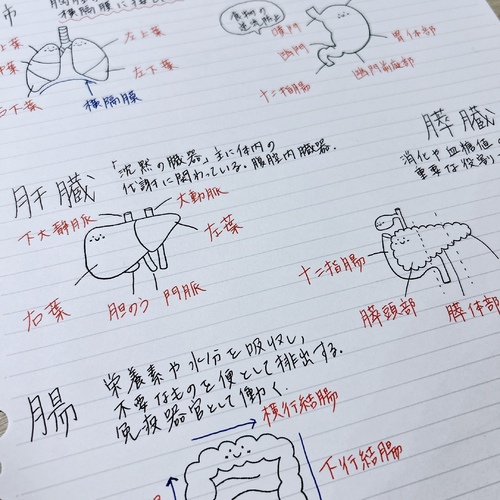 市
横隔膜に
左上葉
左下葉
下葉
横隔膜
食物の
逆流防止
噴門
幽門
胃体部
幽門前庭部
十二指腸
肝臓
「沈黙の臓器」主に体内の
代謝に関わっている。腹腔内臓器。
下大静脈
大動脈
左葉
右葉
胆のう
門脈
膵臓
消化や血糖値
重要な役割
十二指腸
膵頭部
膵体部
腸
栄養素や水分を吸収し、
不要なものを便として排出する。
免疫器官として働く。
横行結腸
下行結腸